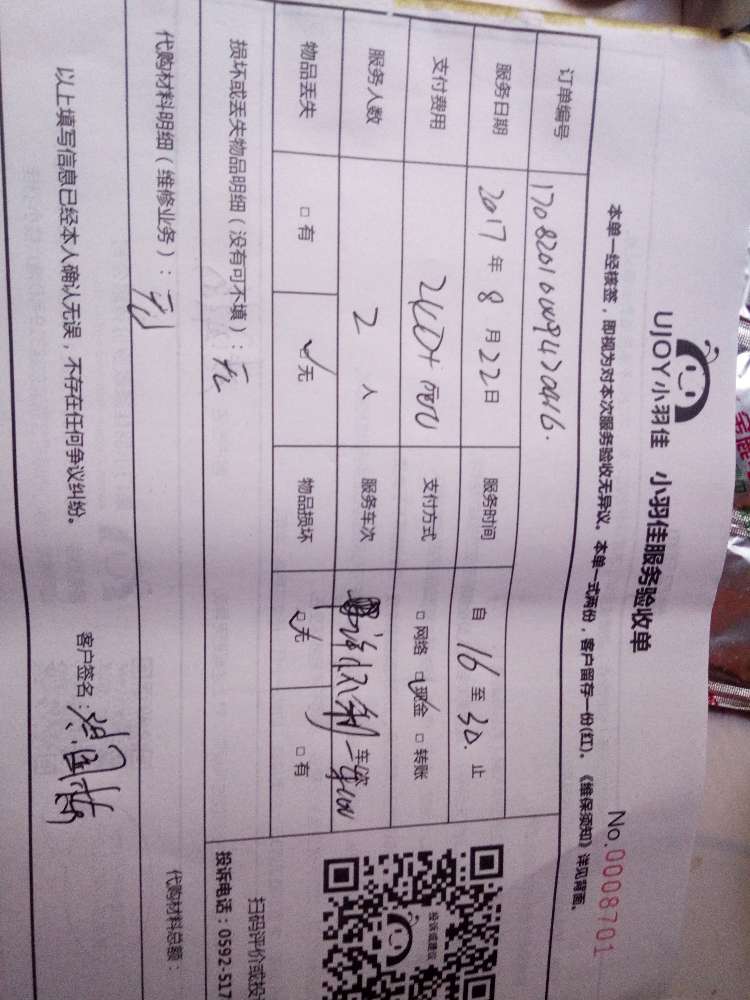 UJOY小羽佳 小羽佳服务验收单
No.0008701
本单一经核签，即视为对本次服务验收无异议。本单一式两份，客户留存一份(红)。《维保须知》详见背面。
订单编号
服务日期 2017年8月22日 服务时间 自16至30.止
支付费用 支付方式 □网络 ☑现金 □转账
服务人数 2人 服务车次 车次
物品丢失 □有 ☑无 物品损坏 ☑无 □有
损坏或丢失物品明细（没有可不填）：无
代购材料明细（维修业务）：无 代购材料总额：
以上填写信息已经本人确认无误，不存在任何争议纠纷。
客户签名：
投诉或建议
扫码评价或投
投诉电话：0592-517